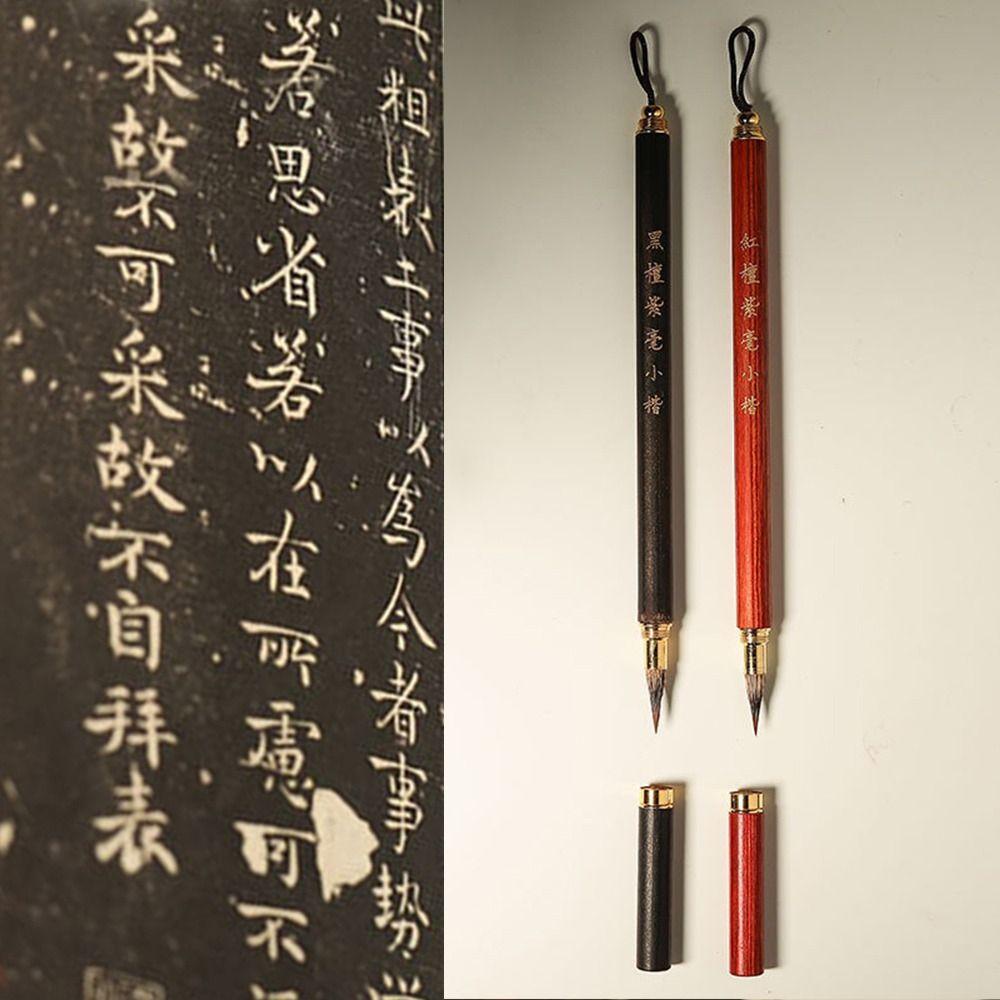 此粗表二事以為今者事勢尚
若思省若以在所慮可不
采故不可采故不自拜表
黑檀紫毫小楷
紅檀紫毫小楷